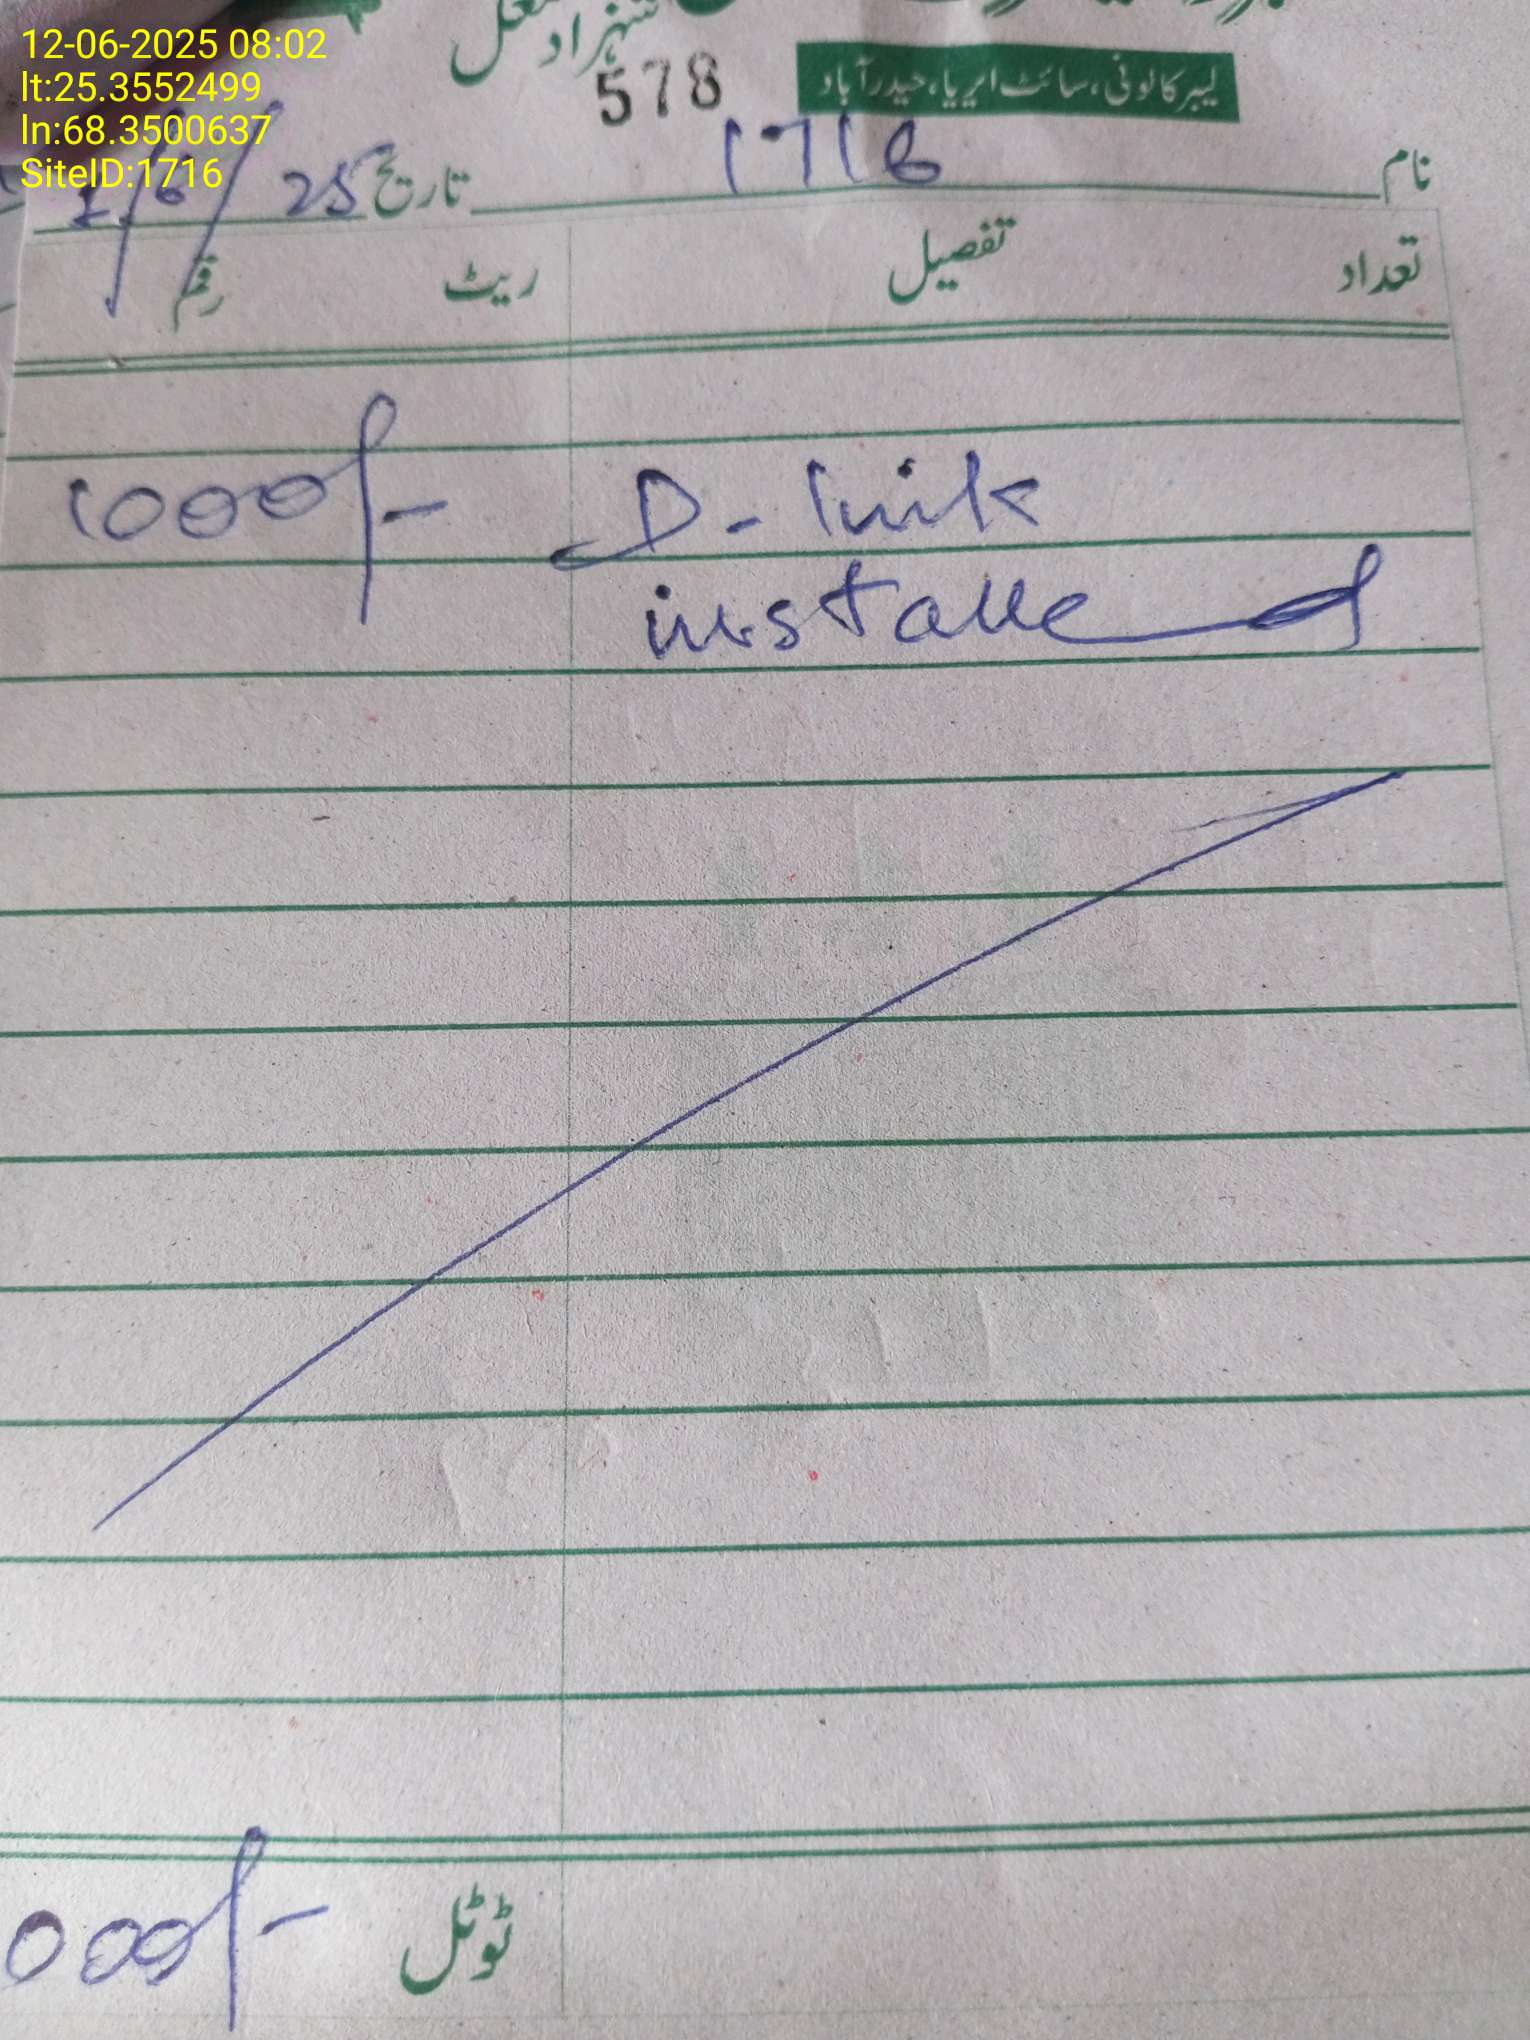 12-06-2025 08:02
lt:25.3552499
ln:68.3500637
SiteID:1716
شہزاد
578
لیبر کالونی، سائٹ ایریا، حیدرآباد
نام 1716 تاریخ /6/25
تعداد تفصیل ریٹ رقم
D-link 1000/-
installed
ٹوٹل 000/-